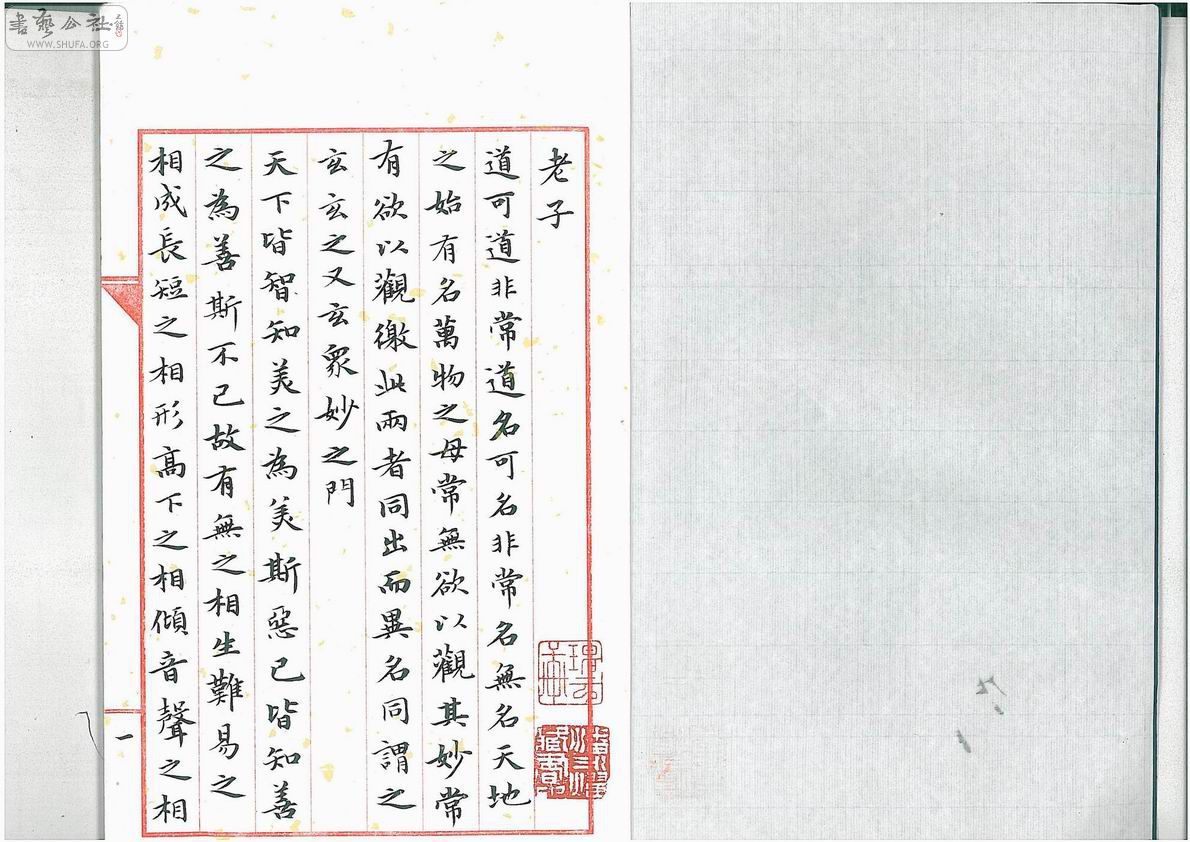 書藝公社
WWW.SHUFA.ORG
老子
道可道非常道名可名非常名無名天地
之始有名萬物之母常無欲以觀其妙常
有欲以觀徼此兩者同出而異名同謂之
玄玄之又玄眾妙之門
天下皆智知美之為美斯惡已皆知善
之為善斯不已故有無之相生難易之
相成長短之相形高下之相傾音聲之相
一